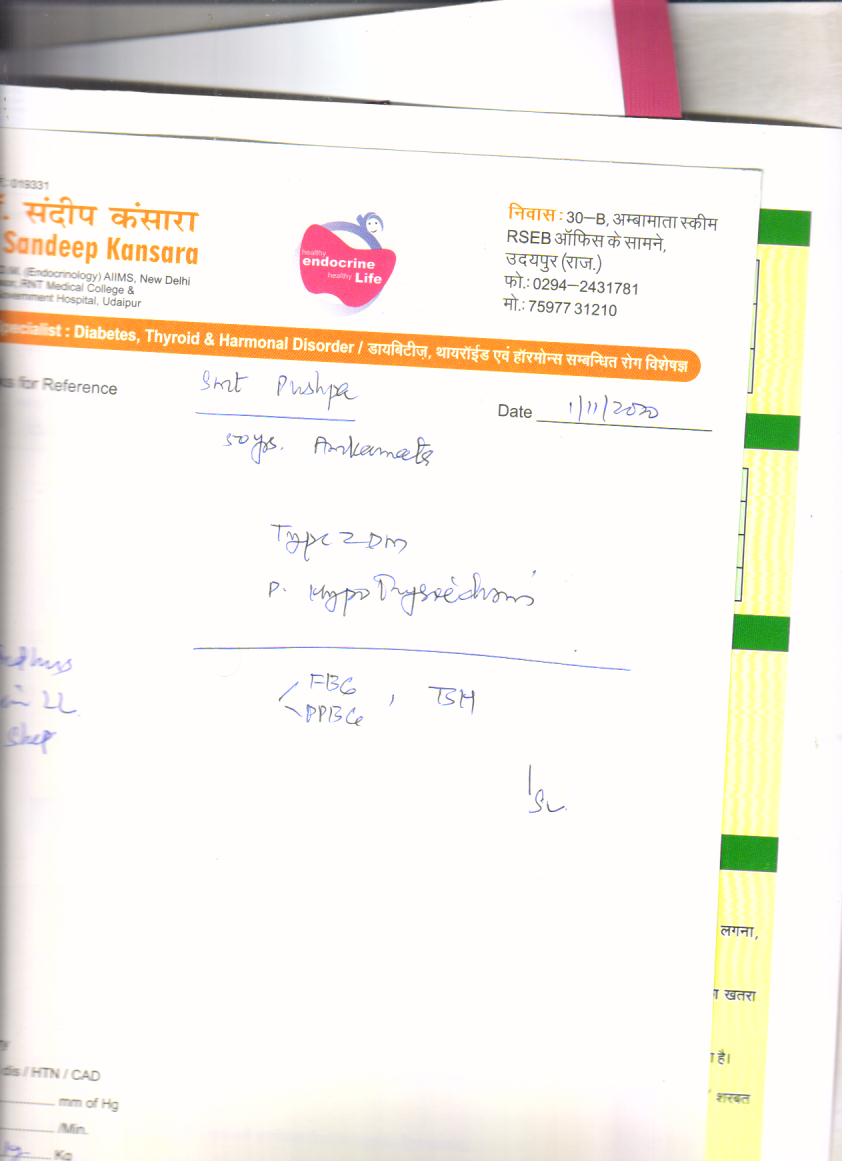 019331
संदीप कंसारा
Sandeep Kansara
(Endocrinology) AIIMS, New Delhi
RNT Medical College &
Hospital, Udaipur
healthy
endocrine
healthy Life
निवास : 30–B, अम्बामाता स्कीम
RSEB ऑफिस के सामने,
उदयपुर (राज.)
फो.: 0294–2431781
मो.: 75977 31210
Specialist : Diabetes, Thyroid & Harmonal Disorder / डायबिटीज़, थायरॉईड एवं हॉरमोन्स सम्बन्धित रोग विशेषज्ञ
for Reference
Smt Pushpa
Date 1/11/2020
50 yrs.
Type 2 DM
P. Hypothyroidism
FBG
PPBG , TSH
लगना,
खतरा
है।
शरबत
dis / HTN / CAD
mm of Hg
/Min.
Kg